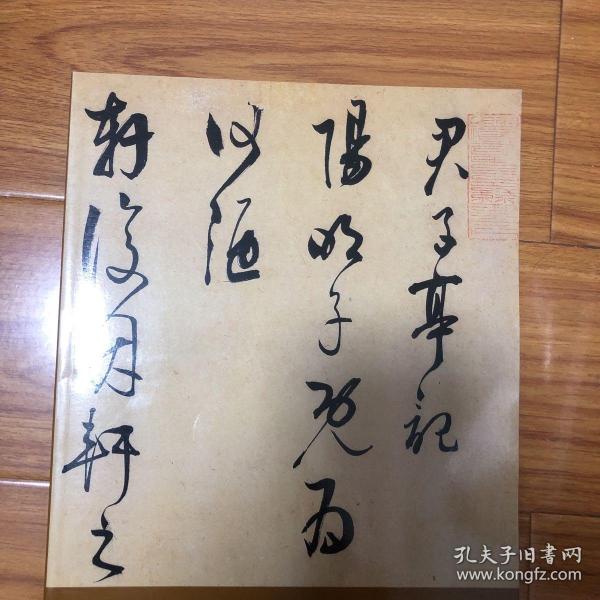 君子亭記
陽明子既為
何陋
軒復因軒之
孔夫子旧書网
www.kongfz.com